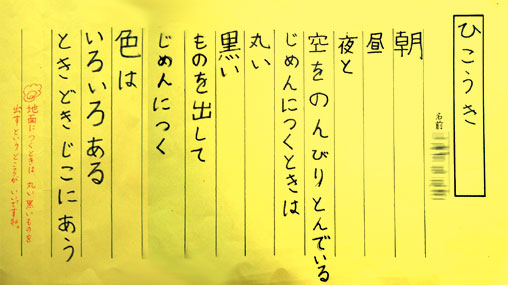 ひこうき
名前
朝
昼
夜と
空をのんびりとんでいる
じめんにつくときは
丸い
黒い
ものを出して
じめんにつく
色は
いろいろある
ときどきじこにあう
地面につくときは、丸い黒いものを
出すというところがいいですね。